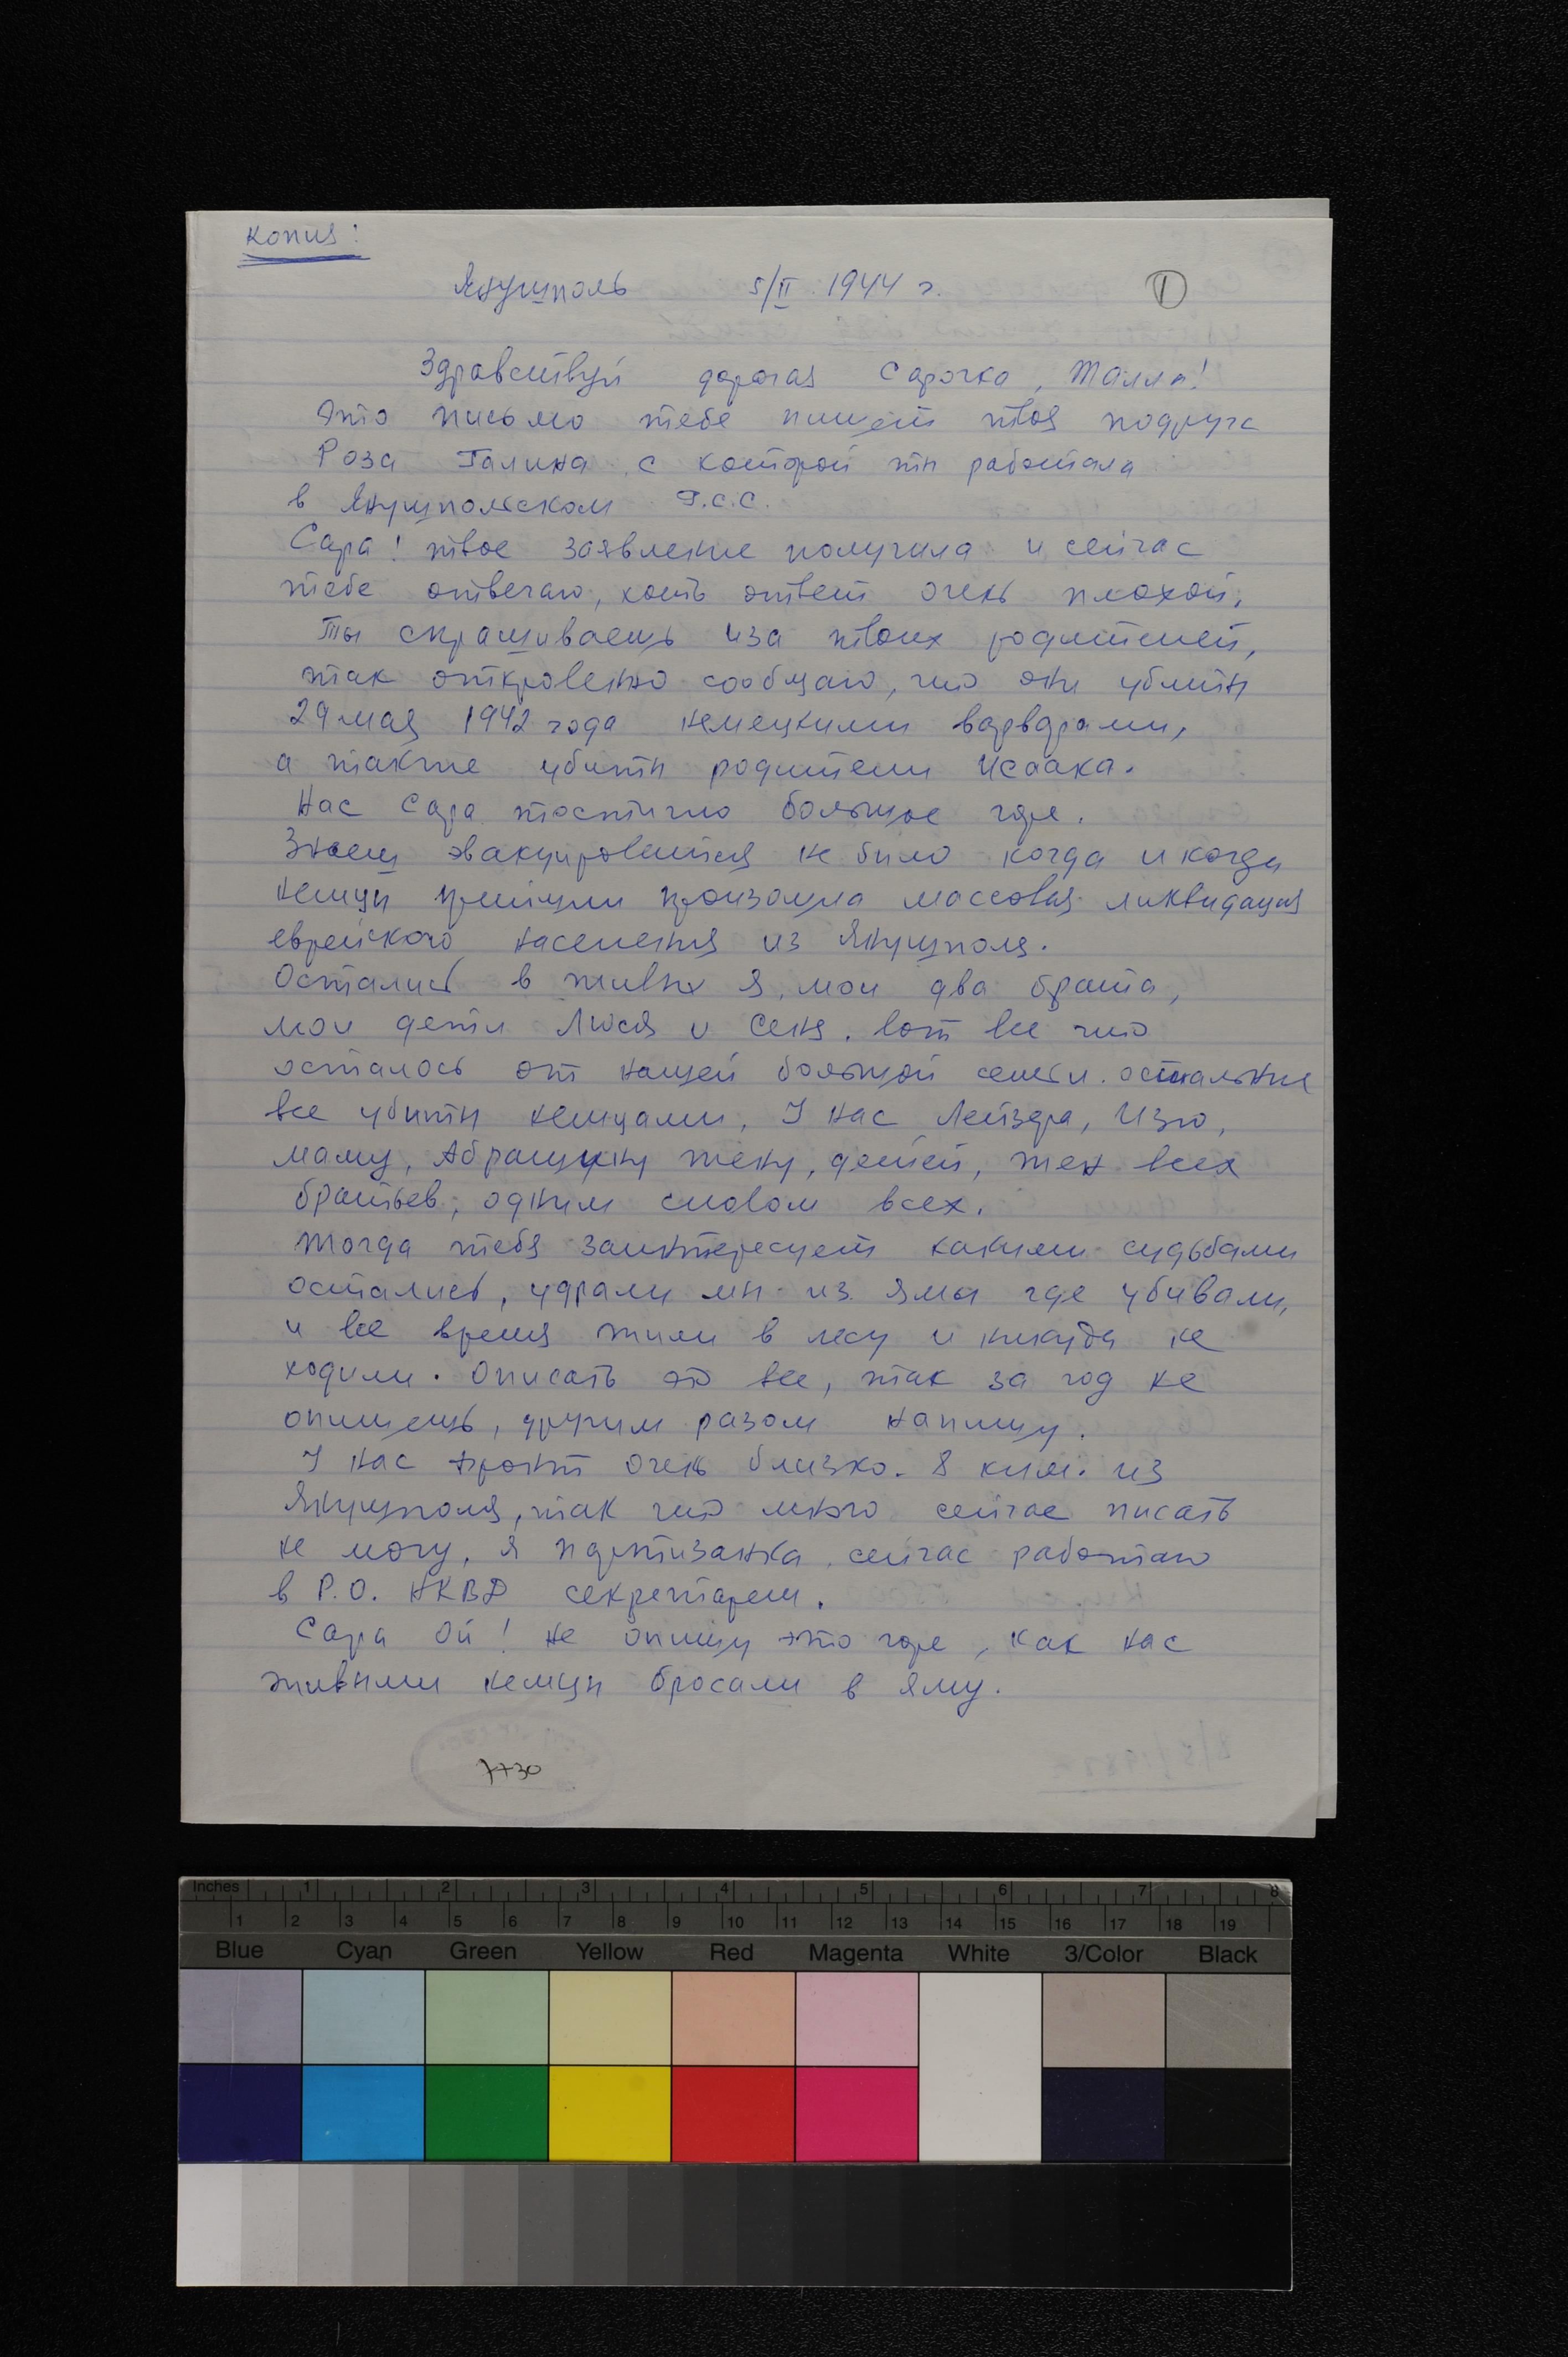 Копия:
Янушполь 5/II 1944 г.
1
Здравствуй дорогая Сарочка, Толла!
Это письмо тебе пишет твоя подруга
Роза Галина с которой ты работала
в Янушпольском Р.С.С.
Сара! твое заявление получила и сейчас
тебе отвечаю, хоть ответ очень плохой.
Ты спрашиваешь иза твоих родителей,
так откровенно сообщаю, что они убиты
29 мая 1942 года немецкими варварами,
а также убиты родители Исаака.
Нас Сара постигло большое горе.
Знаеш эвакуироватся не было когда и когда
немцы пришли произошла массовая ликвидация
еврейского населения из Янушполя.
Остались в живых я, мои два брата,
мои дети Люся и Сеня. Вот все что
осталось от нашей большой семьи. остальные
все убиты немцами. У нас Лейзера, Изю,
маму, Абрашину жену, детей, жен всех
братьев, одним словом всех.
Тогда тебя заинтересует какими судьбами
остались, удрали мы из ямы где убивали,
и все время жили в лесу и никуда не
ходили. Описать это все, так за год не
опишешь, другим разом напишу.
У нас фронт очень близко. 8 килм. из
Янушполя, так что много сейчас писать
не могу, я партизанка, сейчас работаю
в Р.О. НКВД секретарем.
Сара ой! Не опишу это горе, как нас
живыми немцы бросали в яму.
7730
Inches 1 2 3 4 5 6 7 8
1 2 3 4 5 6 7 8 9 10 11 12 13 14 15 16 17 18 19
Blue Cyan Green Yellow Red Magenta White 3/Color Black